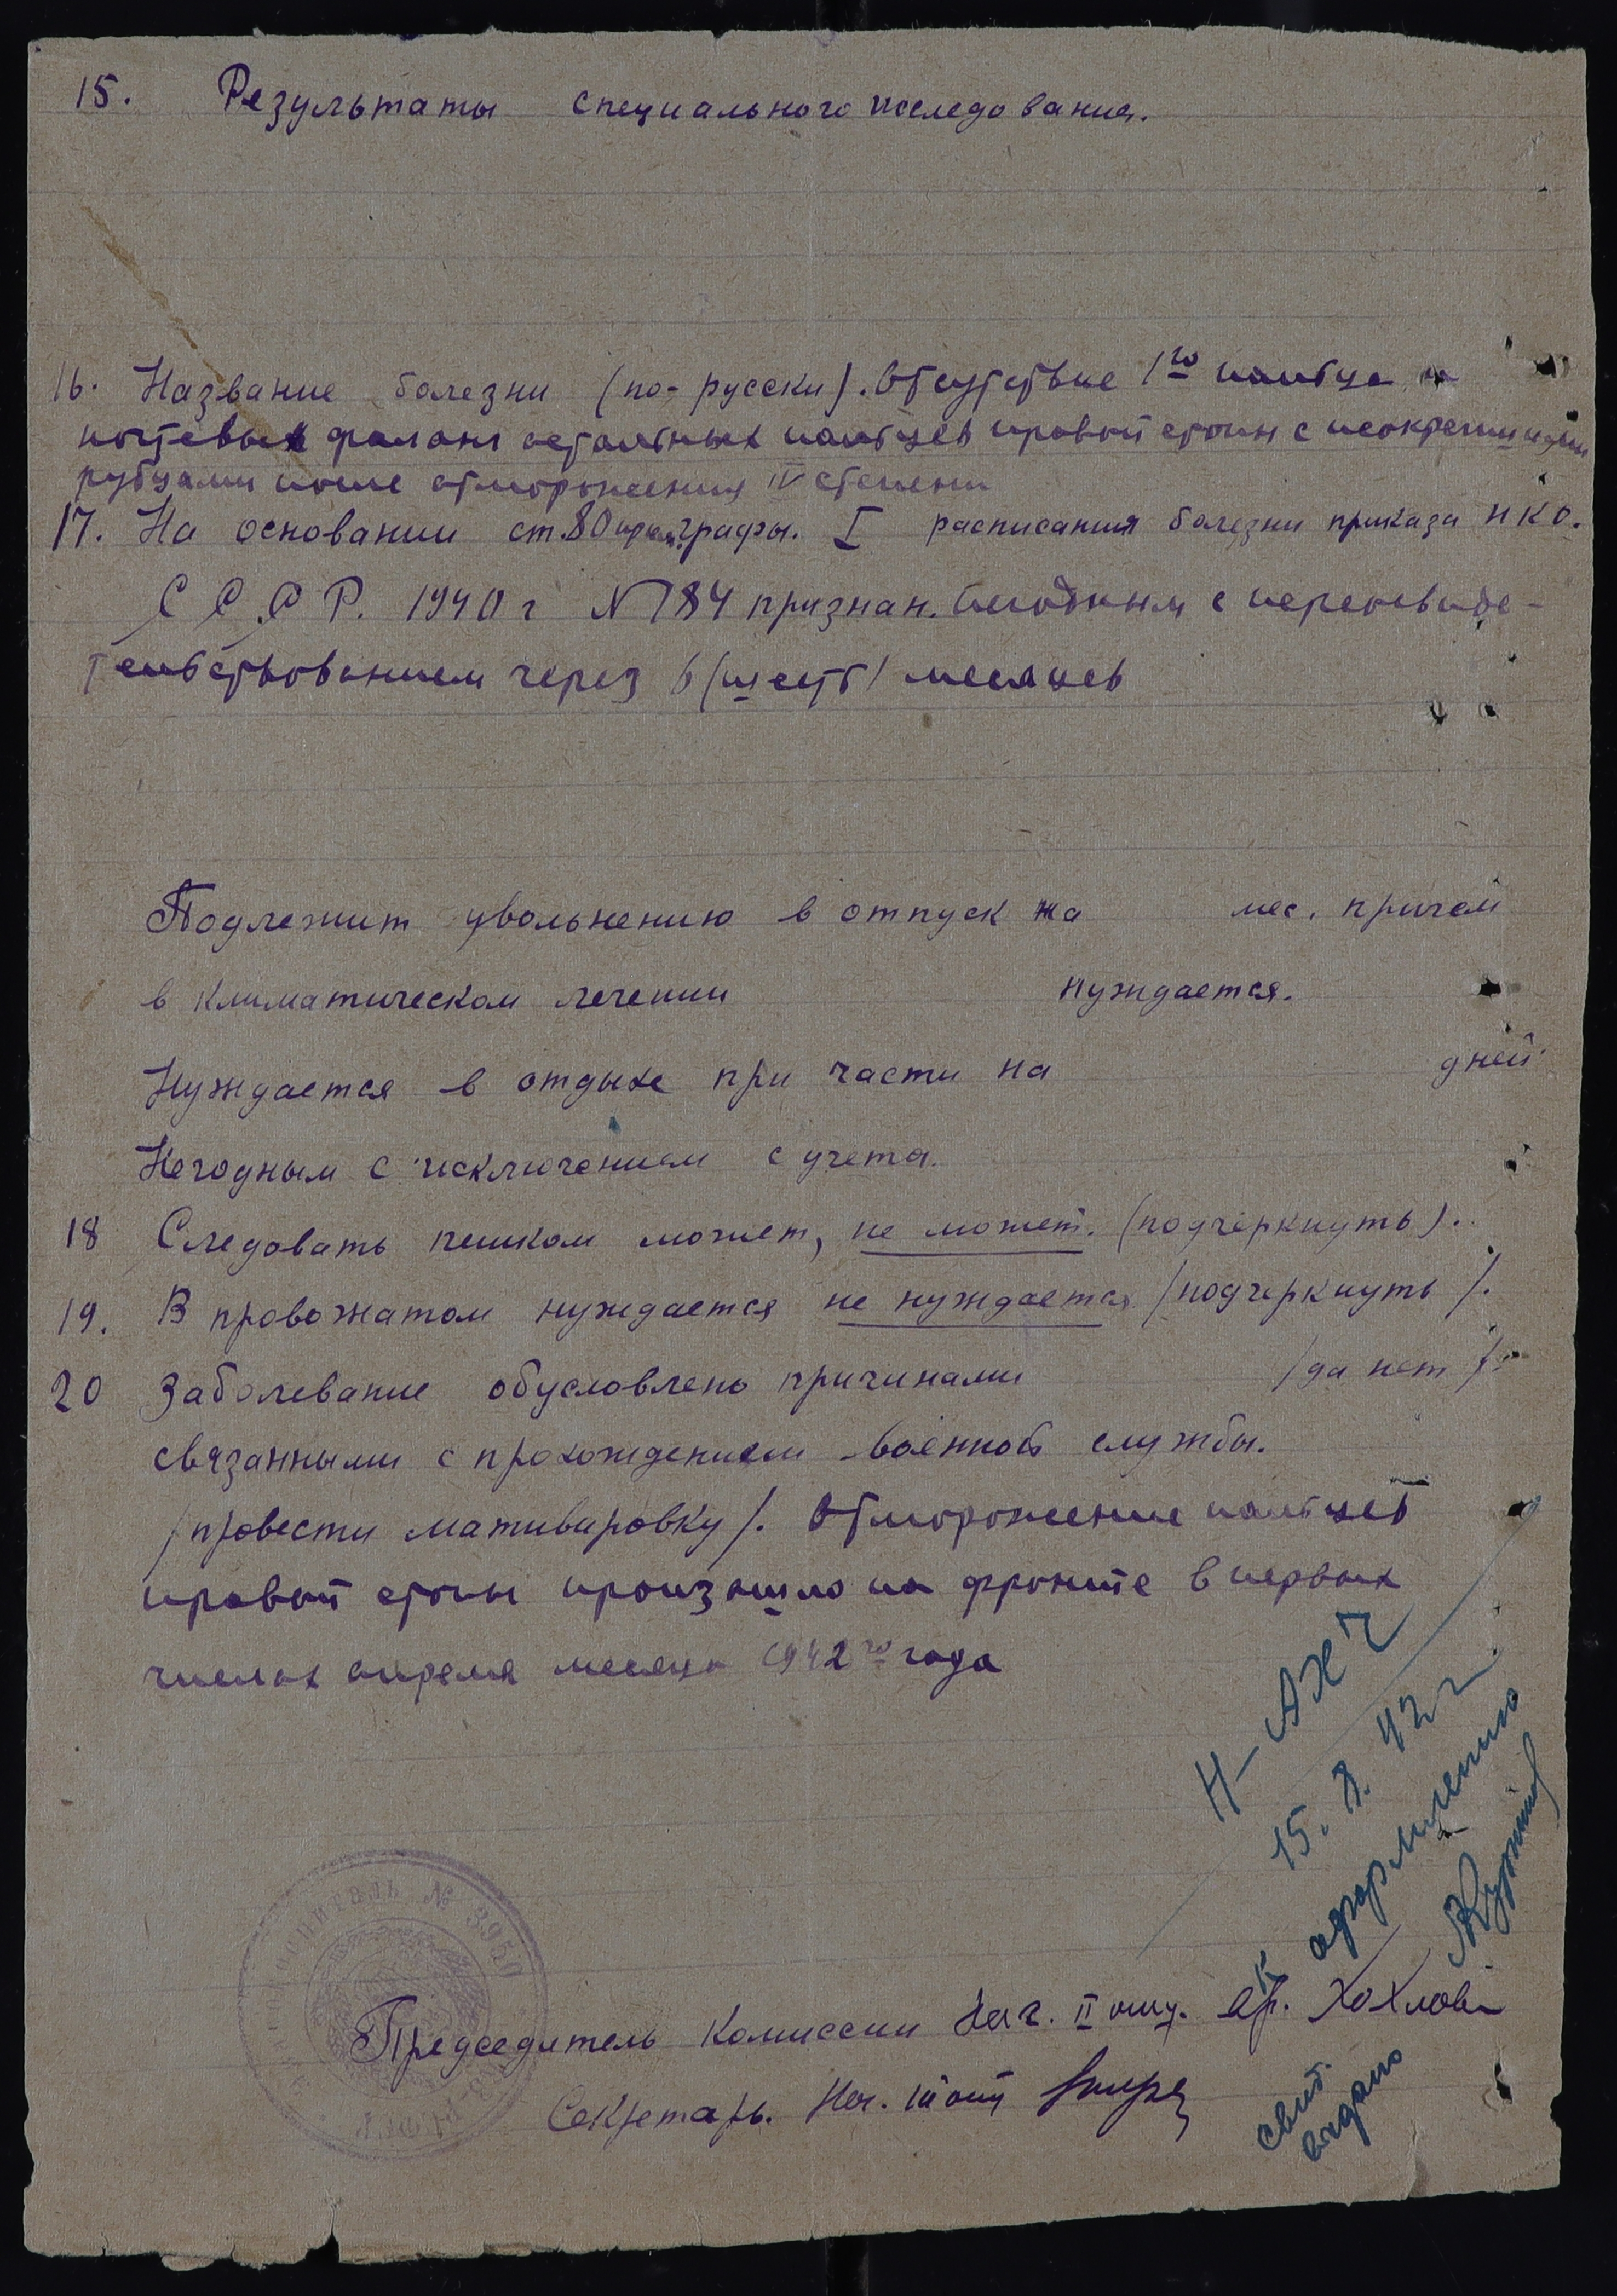 15. Результаты специального исследования.
16. Название болезни (по-русски). Отсутствие 1го пальца и
ногтевых фаланг остальных пальцев правой стопы с неокрепшими
рубцами после отморожения IV степени
17. На основании ст. 80 графы. I расписания болезни приказа НКО.
С С С Р. 1940 г N 184 признан. Негодным с переосвиде-
тельствованием через 6 (шесть) месяцев
Подлежит увольнению в отпуск на мес. причем
в климатическом лечении нуждается.
Нуждается в отдыхе при части на дней
Негодным с исключением с учета.
18 Следовать пешком может, не может. (подчеркнуть).
19. В провожатом нуждается не нуждается /подчеркнуть/.
20 Заболевание обусловлено причинами /да нет/.
связанными с прохождением военной службы.
/провести мативировку/. Отморожение пальцев
правой стопы произошло на фронте в первых
числах апреля месяца 1942го года
15. 8. 42 г.
к оформлению
госпиталь № 3950
Председатель Комиссии Нач. II отд. вр. Хохлова
Секретарь. Нач. III отд
свид.
выдано